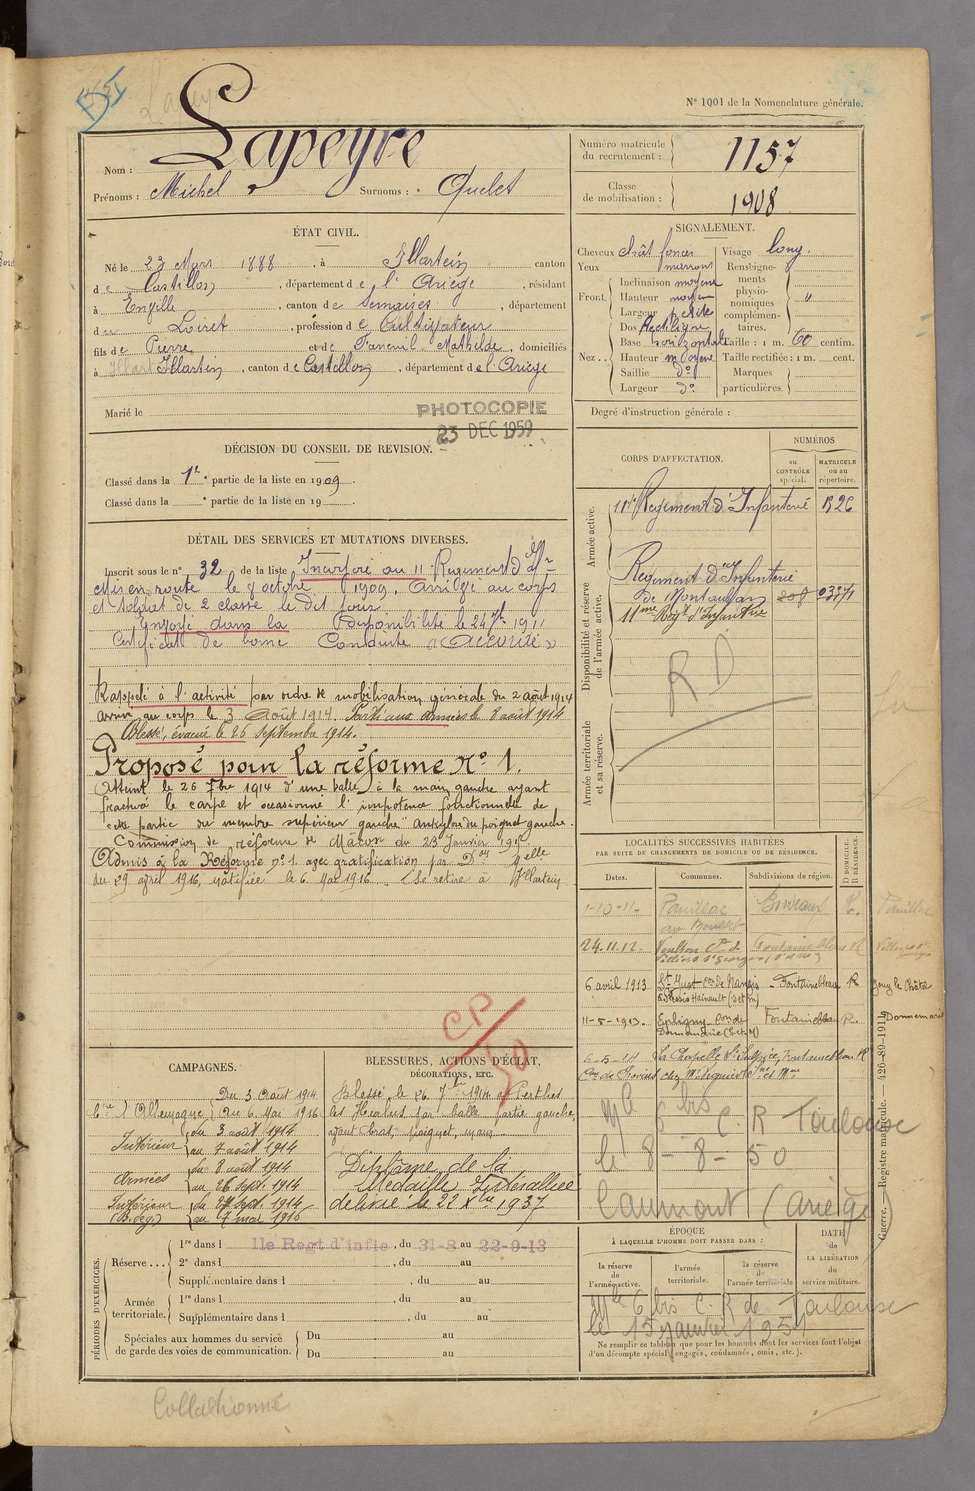 N° 1001 de la Nomenclature générale.
Nom : Lapeyre
Prénoms : Michel Surnoms : Quelet
Numéro matricule du recrutement : 1157
Classe de mobilisation : 1908
ÉTAT CIVIL.
Né le 23 Mars 1888, à Illartein canton
de Castillon, département de l'Ariège, résidant
à canton de, département
du Loiret, profession de Cultivateur
fils de Pierre et de Mathilde, domiciliés
à Illartein, canton de Castillon, département de l'Ariège
Marié le
PHOTOCOPIE
23 DEC 1959
SIGNALEMENT.
Cheveux chât foncés Visage long
Yeux marrons
Front. Inclinaison moyenne
Hauteur moyen
Largeur petite
Nez.. Dos Rectiligne
Base horizontale
Hauteur moyenne
Saillie d°
Largeur d°
Renseignements physionomiques complémentaires. "
Taille : 1 m. 60 centim.
Taille rectifiée : 1 m. cent.
Marques particulières.
Degré d'instruction générale :
DÉCISION DU CONSEIL DE REVISION.
Classé dans la 1re partie de la liste en 1909
Classé dans la e partie de la liste en 19
DÉTAIL DES SERVICES ET MUTATIONS DIVERSES.
Inscrit sous le n° 32 de la liste Incorporé au 11 Regiment d'Inf
Mis en route le 8 octobre 1909. Arrivé au corps
et soldat de 2 classe le dit jour
Envoyé dans la Disponibilité le 24 7bre 1911
Certificat de bonne Conduite « Accordé »
Rappelé à l'activité par ordre de mobilisation générale du 2 août 1914
arrivé au corps le 3 Août 1914. Parti aux armées le 8 août 1914
Blessé, évacué le 26 septembre 1914.
Proposé pour la réforme N° 1.
Atteint le 26 7bre 1914 d'une balle à la main gauche ayant
fracturé le carpe et occasionné l'impotence fonctionnelle de
cette partie du membre supérieur gauche" ankylose du poignet gauche.
Commission de réforme de Mâcon du 23 Janvier
Admis à la Réforme n° 1 avec gratification par Don
du 29 avril 1916, notifiée le 6 Mai 1916. Se retire à Illartein
CORPS D'AFFECTATION.
NUMÉROS
au CONTRÔLE spécial.
MATRICULE ou au répertoire.
Armée active.
11e Regiment d'Infanterie 1326
Disponibilité et réserve de l'armée active.
Regiment d'Infanterie
de Montauban 208 03371
11ème Reg d'Infanterie
RD
Armée territoriale et sa réserve.
LOCALITÉS SUCCESSIVES HABITÉES
PAR SUITE DE CHANGEMENTS DE DOMICILE OU DE RÉSIDENCE.
Dates. Communes. Subdivisions de région. D DOMICILE. R RÉSIDENCE.
1-10-11 Pauillac Bordeaux R.
24.11.12. Voulton Con de Villiers St Georges Fontainebleau R
6 avril 1913 St Just con de Nangis Fontainebleau R
11-5-1913. Egligny Con de Donnemarie (S et M) Fontainebleau R.
6-5-14 La Chapelle St Sulpice, Fontainebleau R
Con de Provins chez Mr
Mle 6 bis C. R Toulouse
le 8-8-50
Caumont (Ariège)
CP
50
CAMPAGNES.
Cgne l'Allemagne Du 3 Août 1914
Au 6 Mai 1916
Intérieur du 3 août 1914
au 7 août 1914
Armées du 8 août 1914
au 26 Sept. 1914
Intérieur du 27 sept. 1914
(B. deg.) au 7 mai 1916
BLESSURES, ACTIONS D'ÉCLAT,
DÉCORATIONS, ETC.
Blessé le 26 7bre 1914 à Perthes
les Hurlus par balle partie gauche,
avant bras, poignet, main
Diplôme de la
Médaille Interalliée
délivré le 22 Xbre 1937
PÉRIODES D'EXERCICES.
Réserve... 1re dans l 11e Regt d'infie, du 31-8 au 22-9-13
2e dans l, du au
Supplémentaire dans l, du au
Armée territoriale. 1re dans l, du au
Supplémentaire dans l, du au
Spéciales aux hommes du service de garde des voies de communication. Du au
Du au
ÉPOQUE
À LAQUELLE L'HOMME DOIT PASSER DANS :
la réserve de l'armée active.
l'armée territoriale.
la réserve de l'armée territoriale
DATE de LA LIBÉRATION du service militaire.
Mle 6 bis C. R de Toulouse
le 15 janvier 1951
Ne remplir ce tableau que pour les hommes dont les services font l'objet
d'un décompte spécial (engagés, condamnés, omis, etc.).
Guerre. — Registre matricule. — 426-89-1911.
Collationné